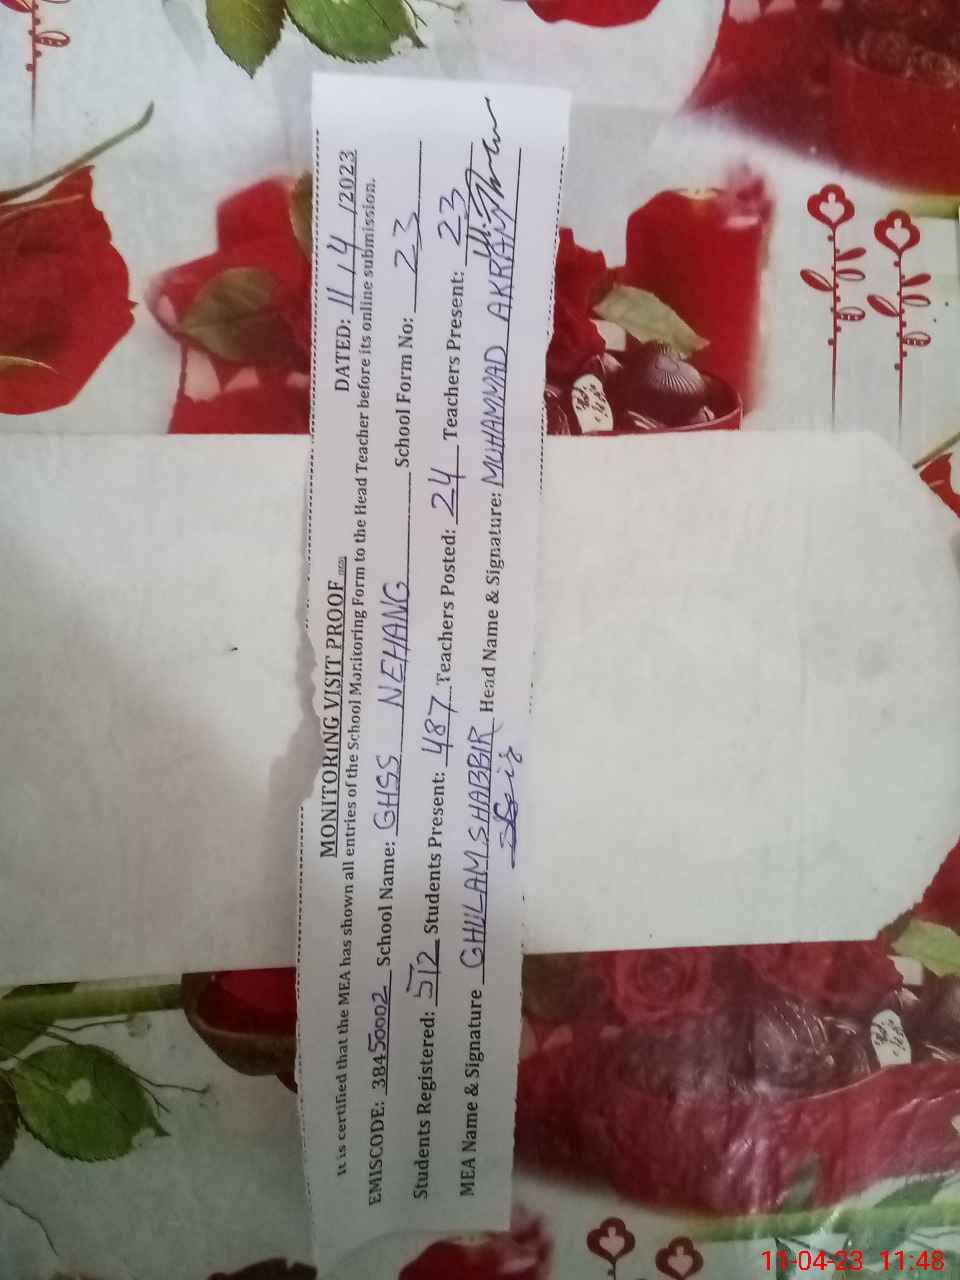 MONITORING VISIT PROOF
DATED: 11/4/2023
It is certified that the MEA has shown all entries of the School Monitoring Form to the Head Teacher before its online submission.
EMISCODE: 38450002 School Name: GHSS NEHANG School Form No: 23
Students Registered: 512 Students Present: 487 Teachers Posted: 24 Teachers Present: 23
MEA Name & Signature GHULAM SHABBIR Head Name & Signature: MUHAMMAD AKRAM
11-04-23 11:48